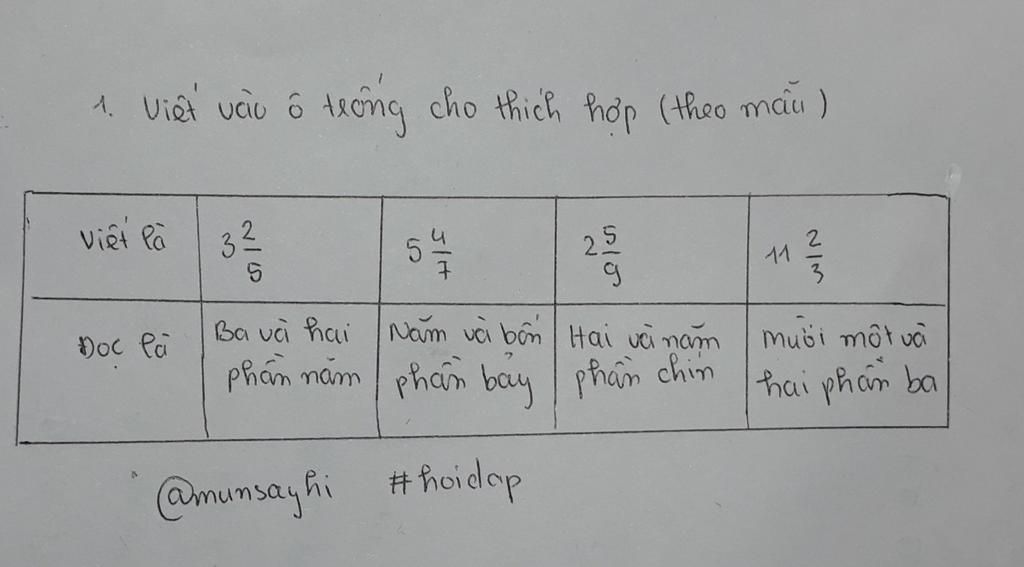 1. Viết vào ô trống cho thích hợp (theo mẫu)
Viết là 3 2/5 5 4/7 2 5/9 11 2/3
Đọc là Ba và hai phần năm Năm và bốn phần bảy Hai và năm phần chín Mười một và hai phần ba
@munsayhi #hoidap